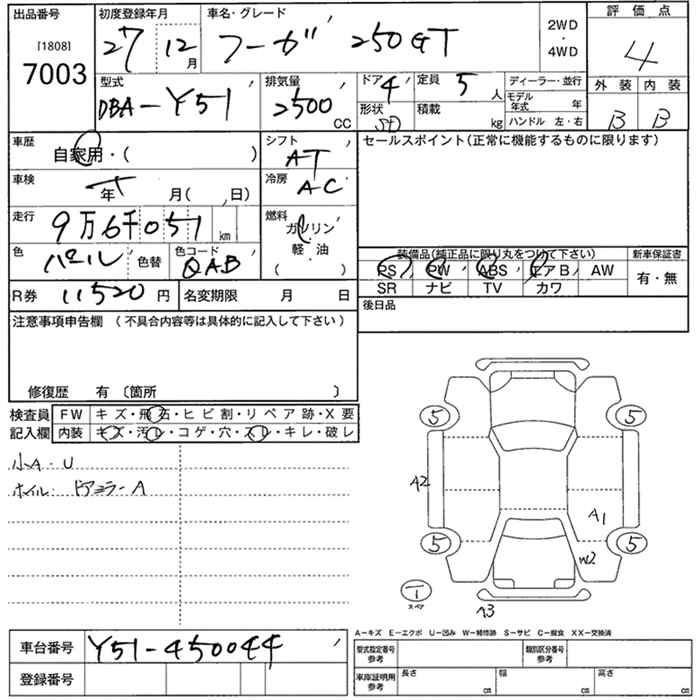 出品番号 初度登録年月 車名・グレード 2WD・4WD 評価点
[1808] 7003 27 12月 フーガ 250GT 4
型式 排気量 ドア 4 定員 5人 ディーラー・並行 外装 内装
DBA-Y51 2500CC 形状 SD 積載 kg モデル年式 年 B B
ハンドル 左・右
車歴 自家用・( ) シフト AT セールスポイント(正常に機能するものに限ります)
車検 年 月( 、日) 冷房 AC
走行 9万6千051km 燃料 ガソリン・軽・油 ( )
色 パール 色替 色コード QAB
装備品(純正品に限り丸をつけて下さい) 新車保証書
PS PW ABS エアB AW 有・無
SR ナビ TV カワ
R券 11520円 名変期限 月 日 後日品
注意事項申告欄 (不具合内容等は具体的に記入して下さい)
修復歴 有 〔箇所 〕
検査員 FW キズ・飛石・ヒビ割・リペア跡・X要
記入欄 内装 キズ・汚レ・コゲ・穴・スレ・キレ・破レ
小A・U
ホイル・ドアミラーA
5 5
A2 A1
5 5
W2
T スペア
A3
A-キズ E-エクボ U-凹み W-補修跡 S-サビ C-腐食 XX-交換済
車台番号 Y51-450044 型式指定番号 参考 類別区分番号 参考
登録番号 車庫証明用 参考 長さ cm 幅 cm 高さ cm